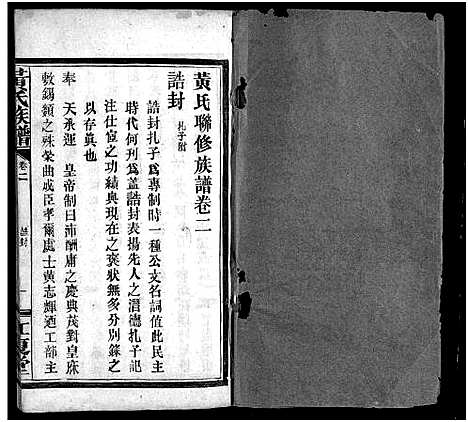 黃氏聯修族譜卷二
誥封 扎子附
誥封扎子爲專制時一種公文名詞值此民主
時代何刊爲蓋誥封表揚先人之潛德扎子記
注仕宦之功績典現在之褒狀無多分別錄之
以存眞也
奉 天承運 皇帝制曰沛酬庸之慶典茂對皇庥
敷錫類之殊榮曲成臣孝爾處士黃志輝廼工部主
黃氏族譜
卷二
誥封
一
江夏堂